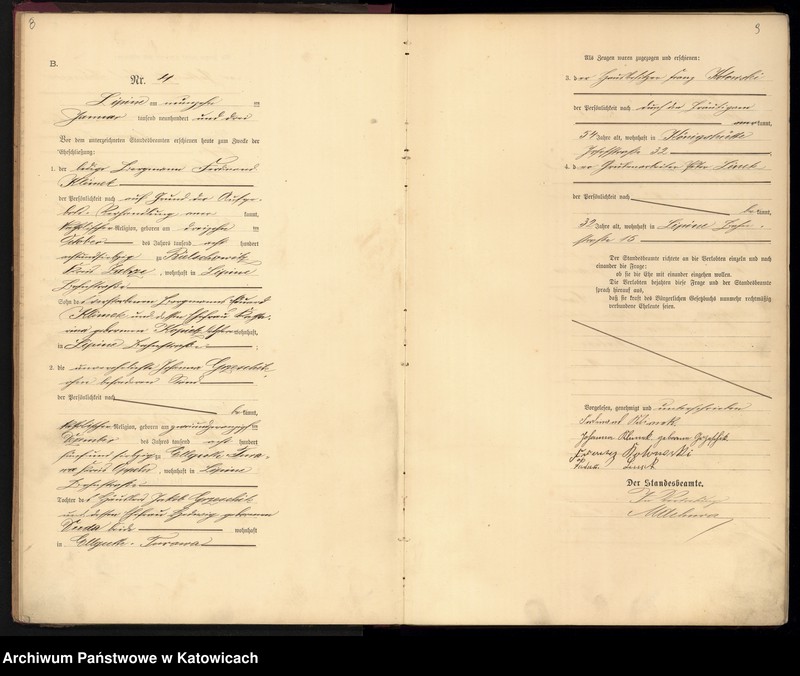 8
B.
Nr. 4
Lipine am neunzehn ten
Januar tausend neunhundert und drei
Vor dem unterzeichneten Standesbeamten erschienen heute zum Zwecke der
Eheschließung:
1. der ledige Bergmann Ferdinand
Klimek
der Persönlichkeit nach auf Grund der Aufge-
bots-Verhandlung aner kannt,
katholischer Religion, geboren am dreizehn ten
Oktober des Jahres tausend acht hundert
zu Bielschowitz
Kreis Zabrze, wohnhaft in Lipine
Bahnstraße
Sohn des verstorbenen Bergmanns Eduard
Klimek und dessen Ehefrau Katha-
rina geborenen Kopietz wohnhaft
in Lipine Bahnstraße
2. die unverehelichte Johanna Grzeschik
ohne besonderen Stand
der Persönlichkeit nach
be kannt,
katholischer Religion, geboren am
des Jahres tausend acht hundert
zu Ellguth-Tura-
wa Kreis Oppeln, wohnhaft in Lipine
Bahnstraße
Tochter des Häuslers Jakob Grzeschik
und dessen Ehefrau Hedwig geborenen
beide wohnhaft
in Ellguth-Turawa
9
Als Zeugen waren zugezogen und erschienen:
3. der Hausbesitzer Franz
der Persönlichkeit nach durch den Bräutigam
aner kannt,
34 Jahre alt, wohnhaft in Königshütte
32
4. der Grubenarbeiter Peter
der Persönlichkeit nach
be kannt,
32 Jahre alt, wohnhaft in Lipine Bahn-
straße 15
Der Standesbeamte richtete an die Verlobten einzeln und nach
einander die Frage:
ob sie die Ehe mit einander eingehen wollen.
Die Verlobten bejahten diese Frage und der Standesbeamte
sprach hierauf aus,
daß sie kraft des Bürgerlichen Gesetzbuchs nunmehr rechtmäßig
verbundene Eheleute seien.
Vorgelesen, genehmigt und unterschrieben
Ferdinand Klimek
Johanna Klimek geborene Grzeschik
Der Standesbeamte.
In Vertretung
Archiwum Państwowe w Katowicach